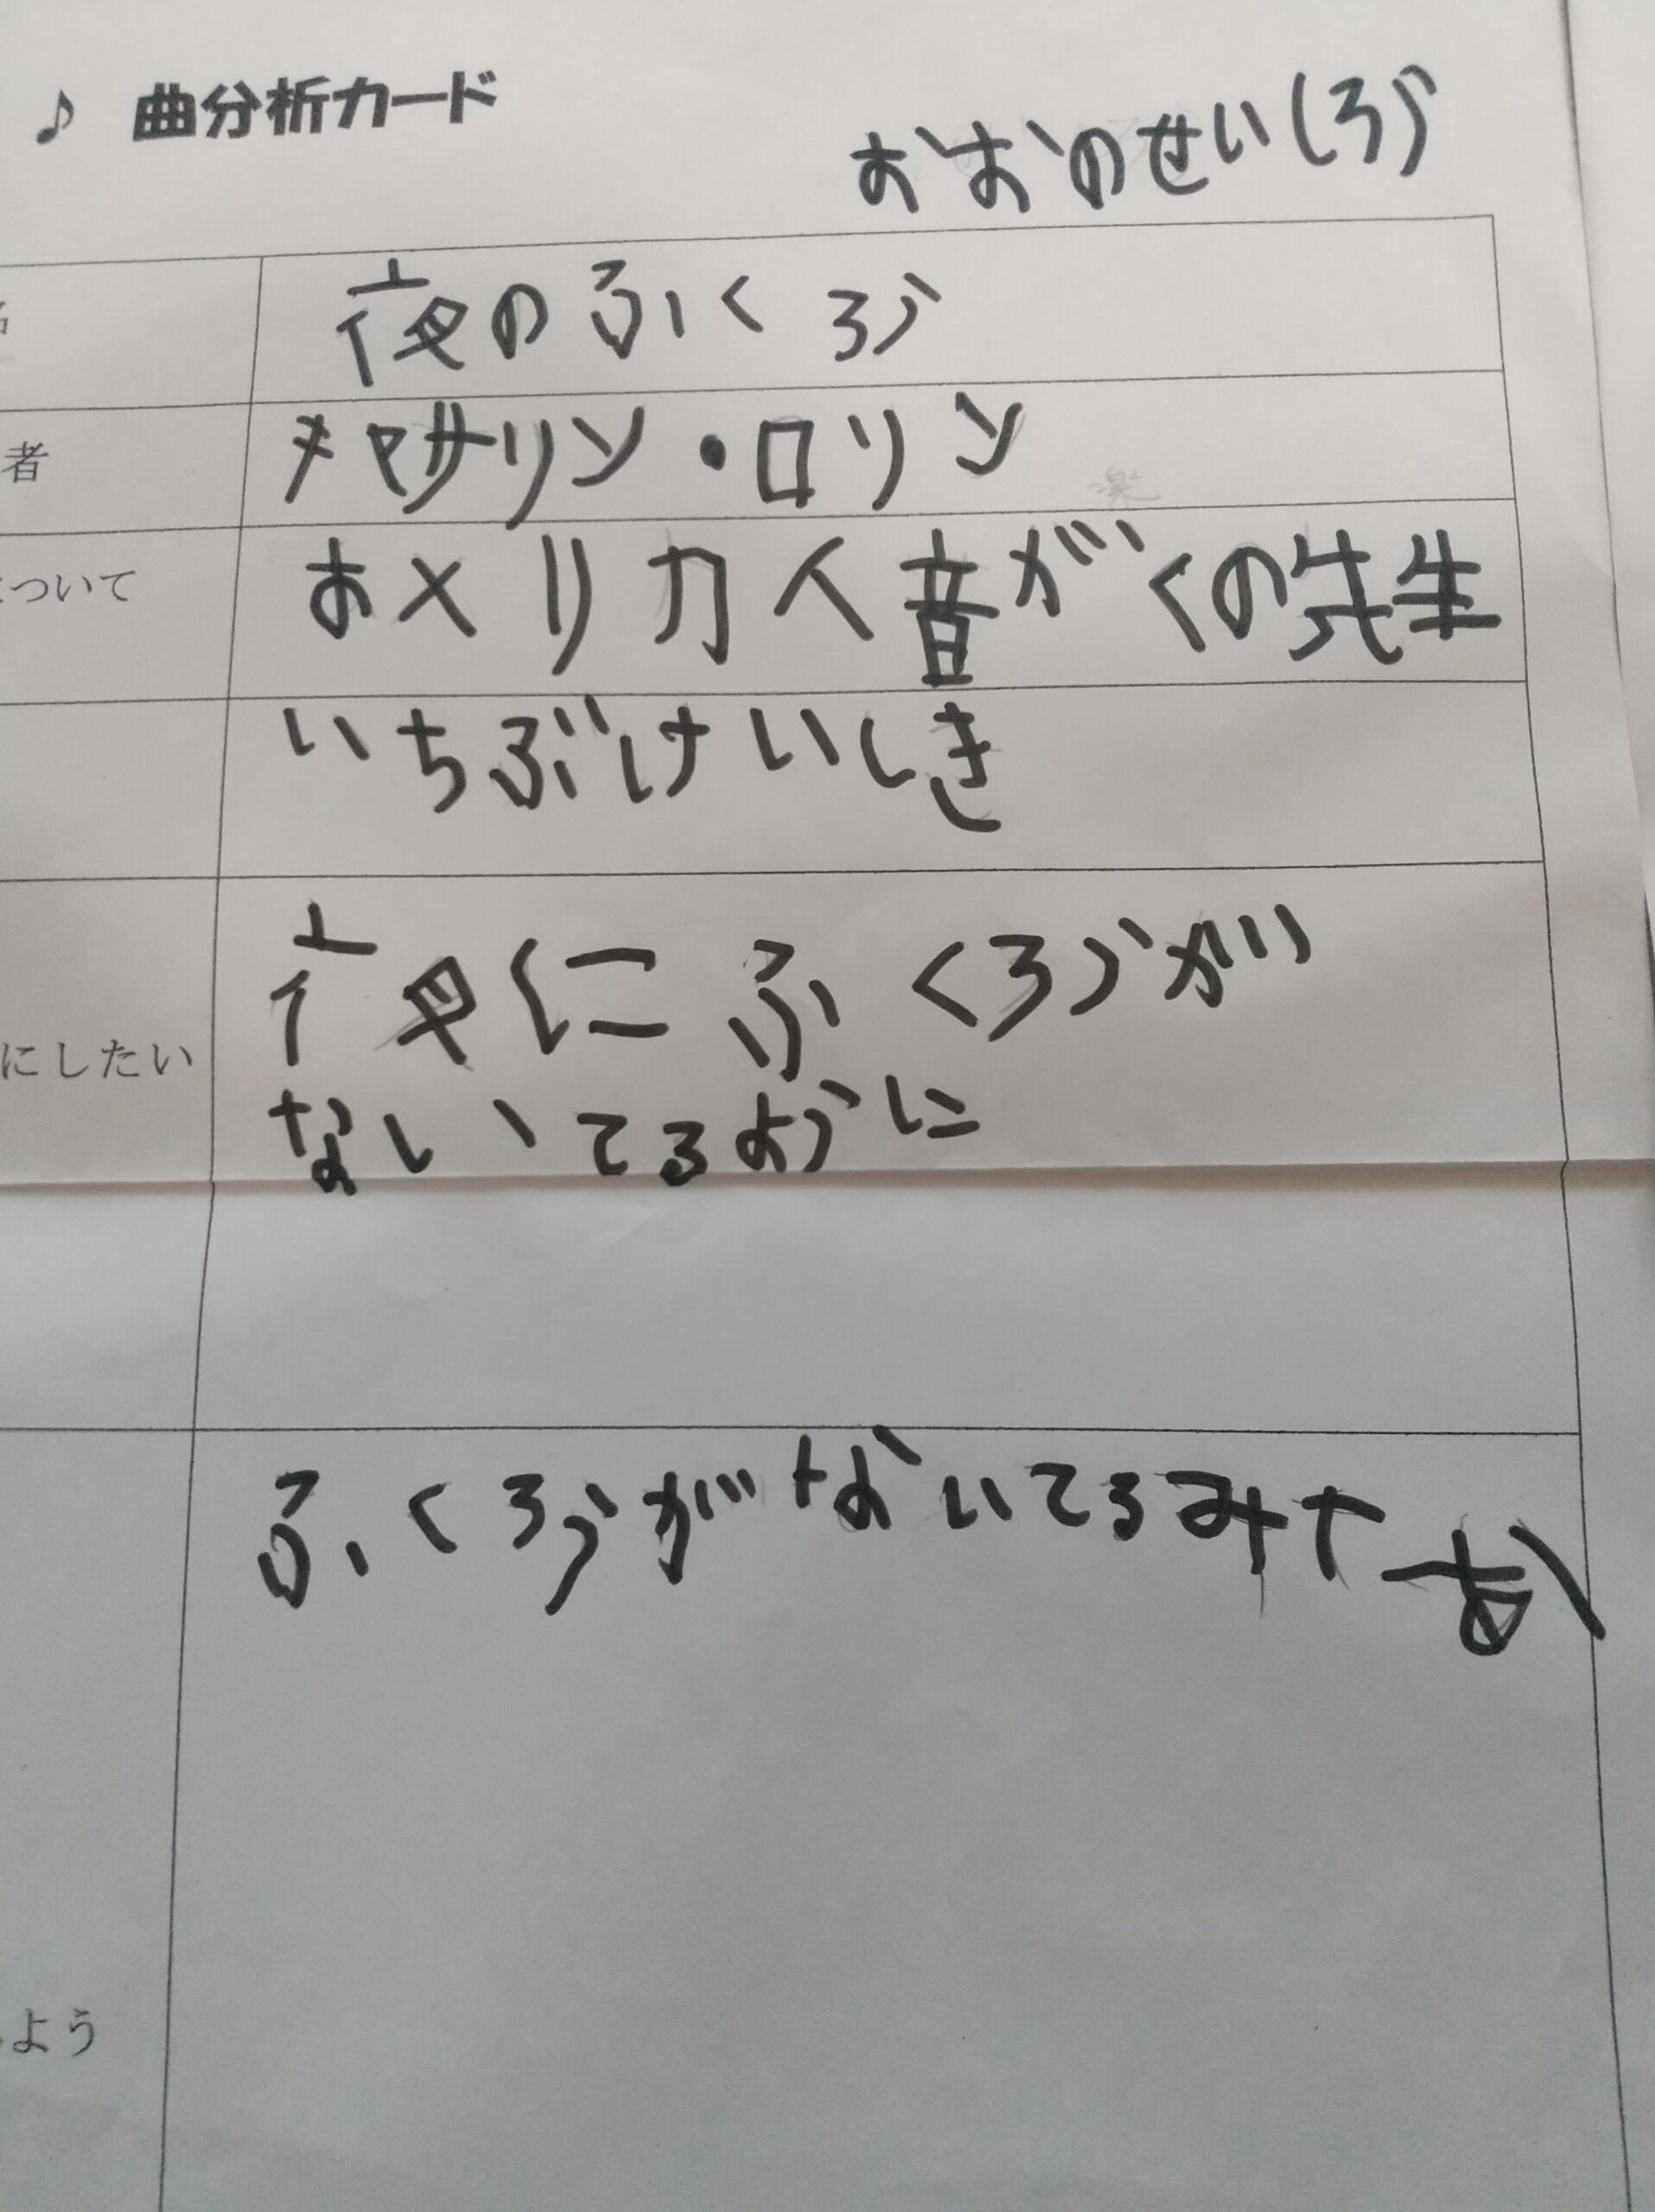 ♪ 曲分析カード
おおのせいしろう
夜のふくろう
者
キャサリン・ロリン
楽
について
おメリカ人音がくの先生
いちぶけいしき
夜にふくろうが
にしたい
ないてるように
ふくろうがないてるみた
よう